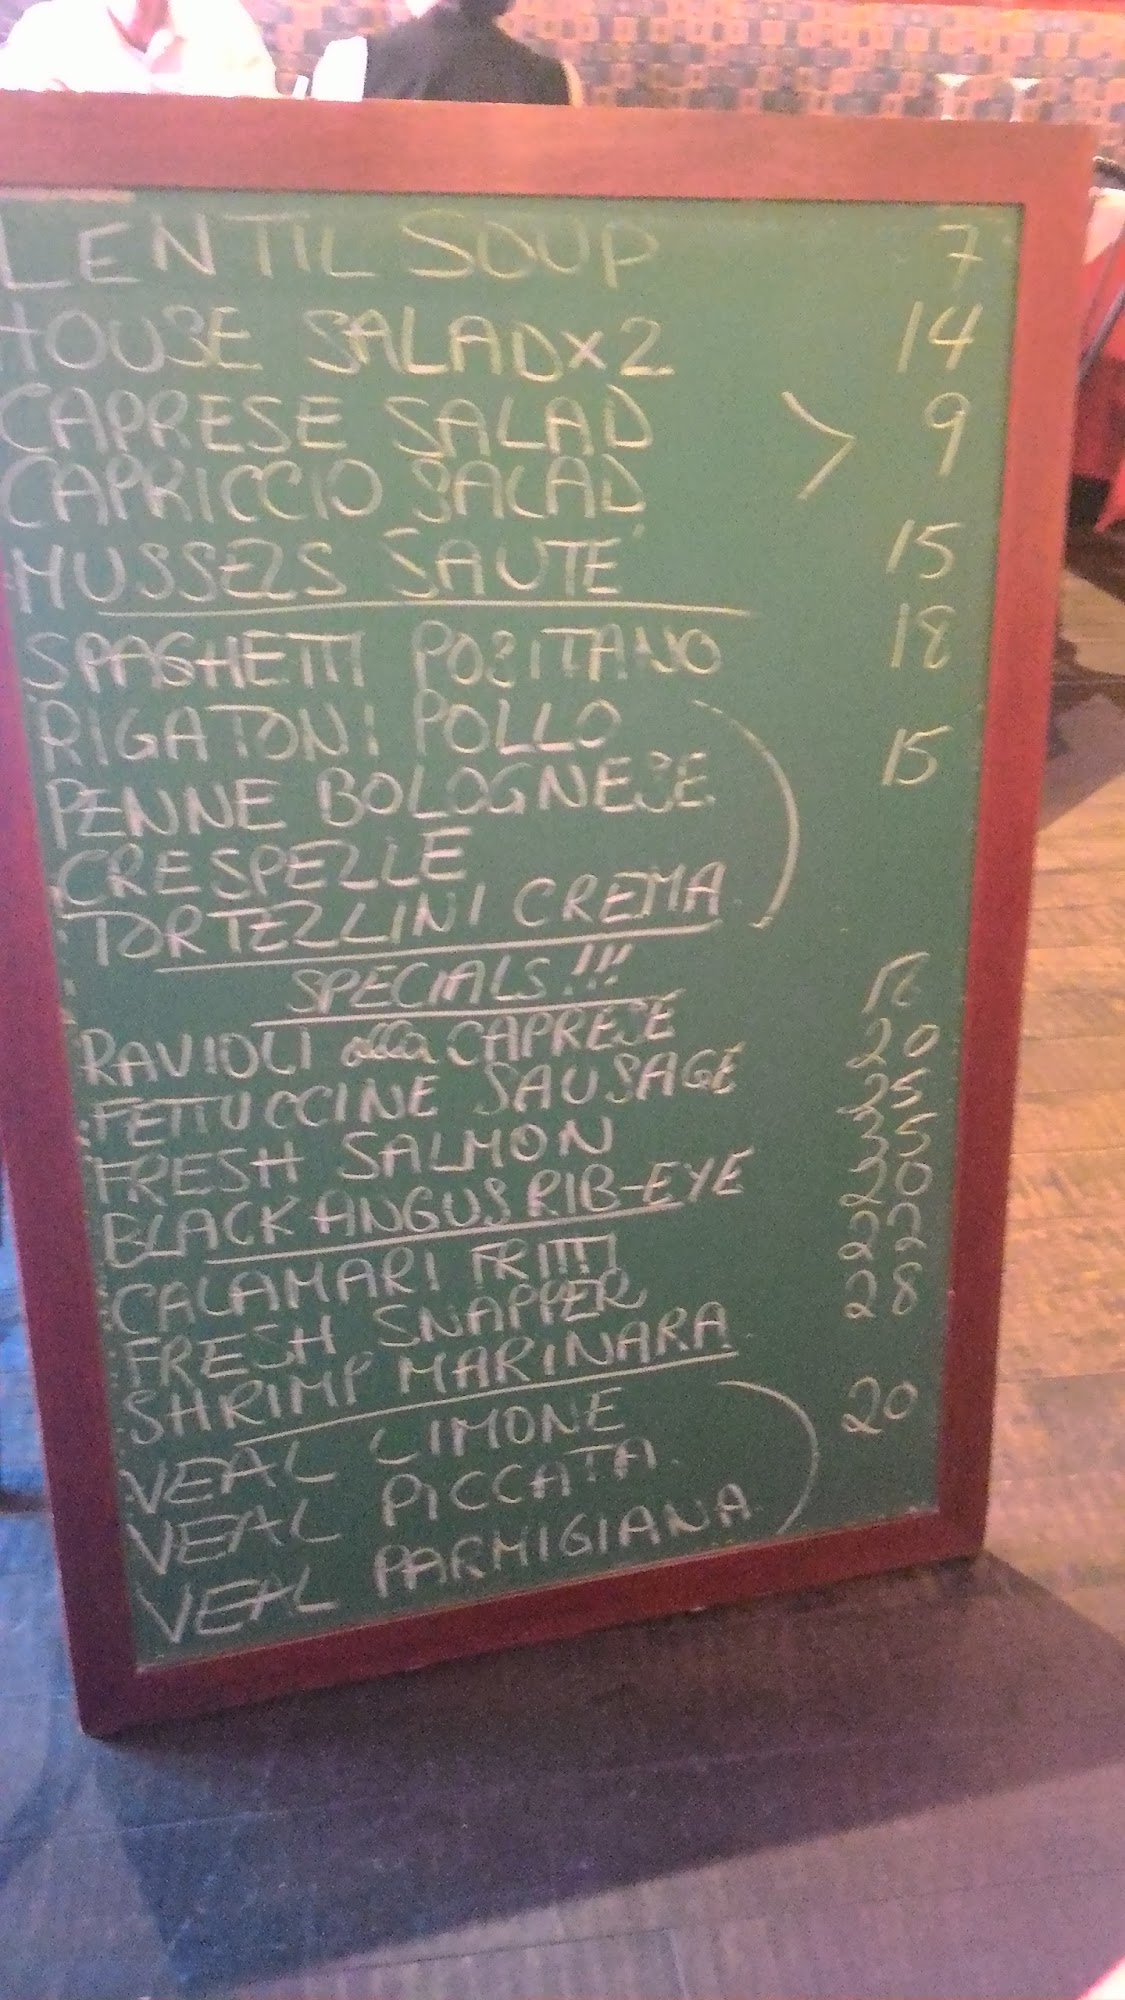 LENTIL SOUP 7
HOUSE SALAD x 2 14
CAPRESE SALAD > 9
CAPRICCIO SALAD
MUSSELS SAUTE' 15
SPAGHETTI POSITANO 18
RIGATONI POLLO 15
PENNE BOLOGNESE
CRESPELLE
TORTELLINI CREMA
SPECIALS!!!
RAVIOLI alla CAPRESE 18
FETTUCCINE SAUSAGE 20
FRESH SALMON 25
BLACK ANGUS RIB-EYE 35
CALAMARI FRITTI 20
FRESH SNAPPER 22
SHRIMP MARINARA 28
VEAL LIMONE 20
VEAL PICCATA
VEAL PARMIGIANA